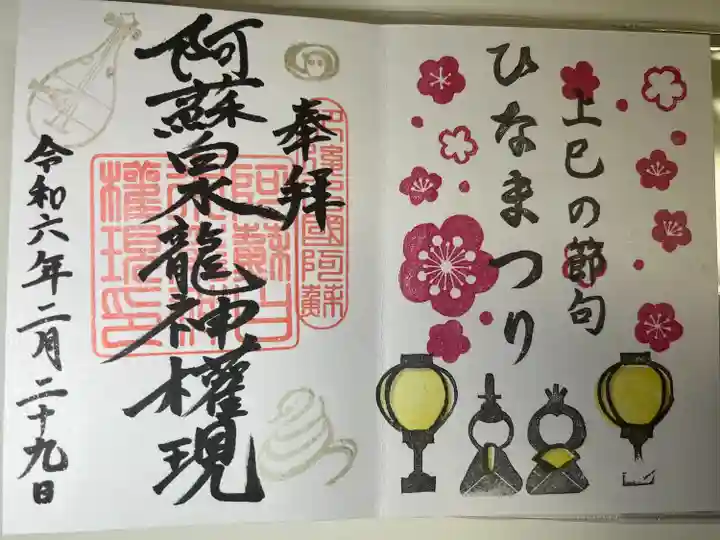 上巳の節句
ひなまつり
奉拝
阿蘇白水龍神權現
令和六年二月二十九日